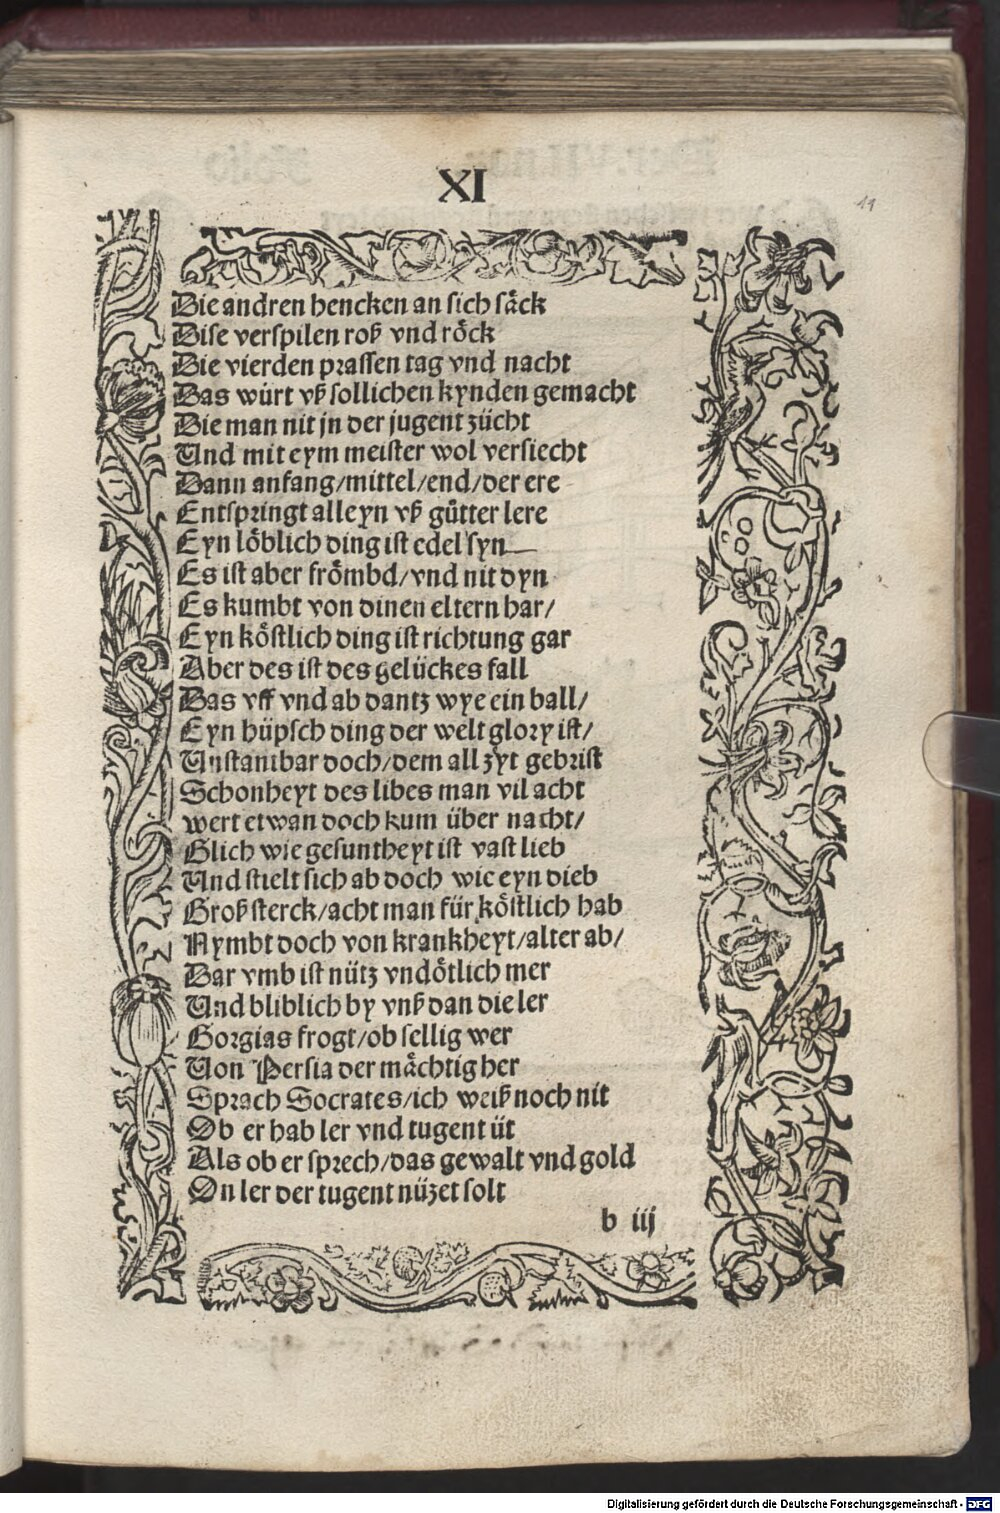 XI
11
Die andren hencken an sich säck
Dise verspilen roß vnd röck
Die vierden prassen tag vnd nacht
Das würt vß sollichen kynden gemacht
Die man nit jn der jugent zücht
Und mit eym meister wol versiecht
Dann anfang/mittel/end/der ere
Entspringt alleyn vß gůtter lere
Eyn löblich ding ist edel syn
Es ist aber frömbd/vnd nit dyn
Es kumbt von dinen eltern har/
Eyn köstlich ding ist richtung gar
Aber des ist des gelückes fall
Das vff vnd ab dantz wye ein ball/
Eyn hüpsch ding der welt glory ist/
Unstantbar doch/dem all zyt gebrist
Schonheyt des libes man vil acht
wert etwan doch kum über nacht/
Glich wie gesuntheyt ist vast lieb
Und stielt sich ab doch wie eyn dieb
Groß sterck/acht man für köstlich hab
Nymbt doch von krankheyt/alter ab/
Dar vmb ist nütz vndötlich mer
Und bliblich by vnß dan die ler
Gorgias frogt/ob sellig wer
Von Persia der mächtig her
Sprach Socrates/ich weiß noch nit
Ob er hab ler vnd tugent üt
Als ob er sprech/das gewalt vnd gold
On ler der tugent nüzet solt
b iij
Digitalisierung gefördert durch die Deutsche Forschungsgemeinschaft - DFG